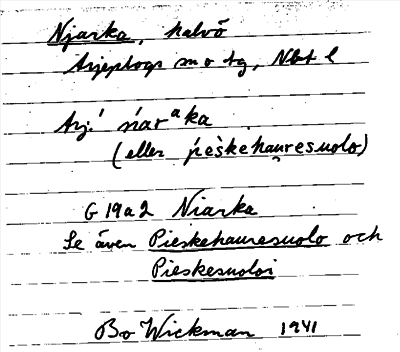 Njarka, halvö
Arjeplogs sn o tg, Nbt l
Arj. ńarᵃka
(eller pèskehau̯resuolo)
G 19a2 Niarka
Se även Pieskehauresuolo och
Pieskesuoloi
Bo Wickman 1941